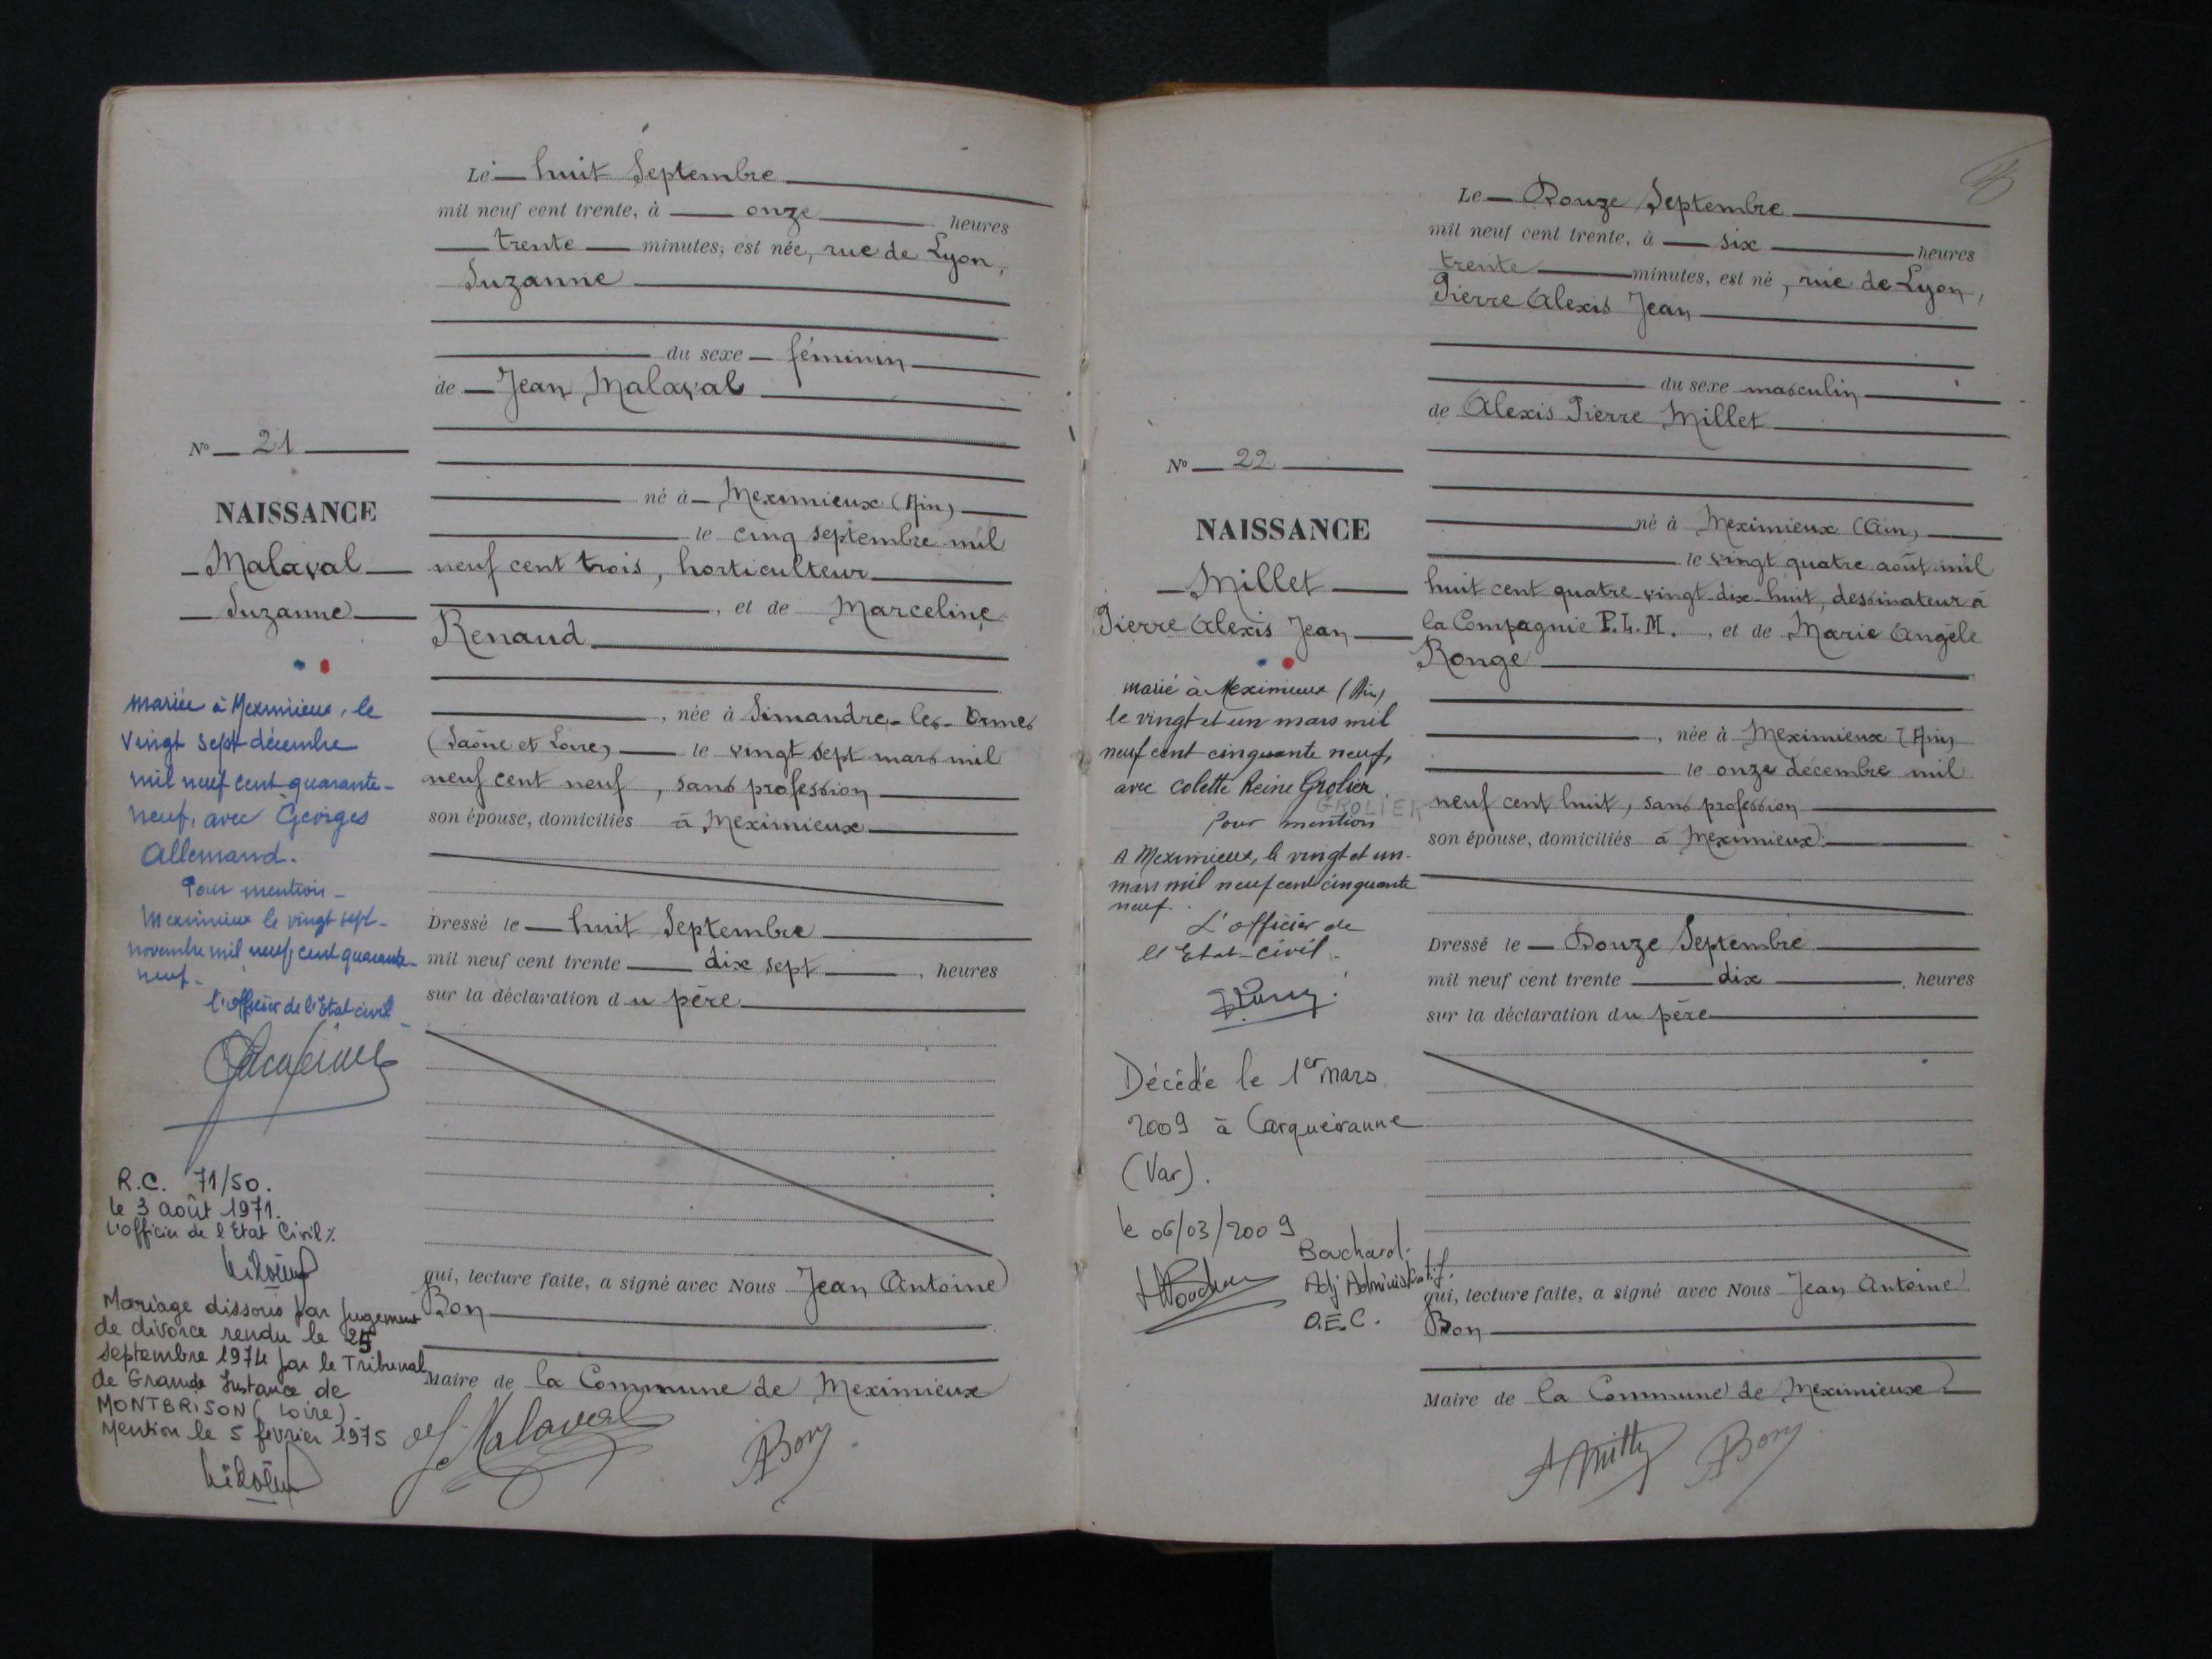 Le huit Septembre
mil neuf cent trente, à onze heures
trente minutes, est née, rue de Lyon,
Suzanne
du sexe féminin
de Jean Malaval
né à Meximieux (Ain)
le cinq septembre mil
neuf cent trois, horticulteur
, et de Marceline
Renaud
, née à Simandre-les-Ormes
(Saône et Loire) le vingt sept mars mil
neuf cent neuf, sans profession
son épouse, domiciliés à Meximieux
Dressé le huit Septembre
mil neuf cent trente dix sept, heures
sur la déclaration du père
qui, lecture faite, a signé avec Nous Jean Antoine
Bon
Maire de la Commune de Meximieux
J. Malaval Bon
N° 21
NAISSANCE
Malaval
Suzanne
mariée à Meximieux, le
vingt sept décembre
mil neuf cent quarante-
neuf, avec Georges
Allemand.
Pour mention -
Meximieux le vingt sept-
novembre mil neuf cent quarante-
neuf.
L'officier de l'Etat civil
R.C. 71/50.
le 3 août 1971.
L'officier de l'Etat Civil %
Mariage dissous par jugement
de divorce rendu le 25
septembre 1974 par le Tribunal
de Grande Instance de
MONTBRISON (Loire).
Mention le 5 février 1975
Le Douze Septembre
mil neuf cent trente, à six heures
trente minutes, est né, rue de Lyon,
Pierre Alexis Jean
du sexe masculin
de Alexis Pierre Millet
né à Meximieux (Ain)
le vingt quatre août mil
huit cent quatre-vingt-dix-huit, dessinateur à
la Compagnie P.L.M., et de Marie Angèle
Ronge
, née à Meximieux (Ain)
le onze décembre mil
neuf cent huit, sans profession
son épouse, domiciliés à Meximieux
Dressé le Douze Septembre
mil neuf cent trente dix heures
sur la déclaration du père
qui, lecture faite, a signé avec Nous Jean Antoine
Bon
Maire de la Commune de Meximieux
Bon
N° 22
NAISSANCE
Millet
Pierre Alexis Jean
marié à Meximieux (Ain)
le vingt et un mars mil
neuf cent cinquante neuf,
avec Colette Reine Grolier.
GROLIER
Pour mention
A Meximieux, le vingt et un-
mars mil neuf cent cinquante
neuf.
L'officier de
l'Etat-civil.
Décédé le 1er mars
2009 à Carqueiranne
(Var).
le 06/03/2009
Bouchard.
Adj Administratif.
O.E.C.